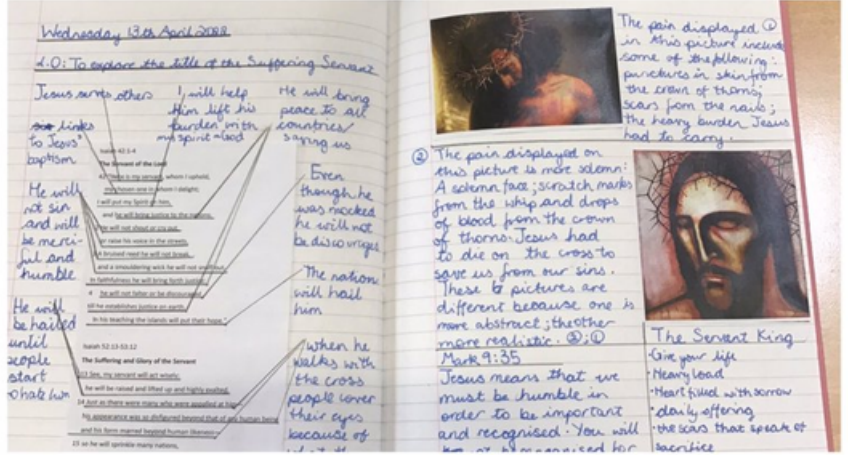 Wednesday 13th April 2022
L.O: To explore the title of the Suffering Servant
Jesus serves others
links
to Jesus'
baptism
He will
not sin
and will
be merci-
ful and
humble
He will
be hailed
until
people
start
I will help
Him lift his
burden with
my spirit - God
He will bring
peace to all
countries/
saving us
Even
though he
was mocked
he will not
be discourages
The nation
will hail
him
when he
walks with
the cross
people cover
their eyes
because of
Isaiah 42:1-4
The Servant of the Lord
42 "Here is my servant, whom I uphold,
my chosen one in whom I delight;
I will put my Spirit on him,
and he will bring justice to the nations.
He will not shout or cry out,
or raise his voice in the streets.
A bruised reed he will not break,
and a smouldering wick he will not snuff out.
In faithfulness he will bring forth justice;
4 he will not falter or be discouraged
till he establishes justice on earth.
In his teaching the islands will put their hope."
Isaiah 52:13-53:12
The Suffering and Glory of the Servant
13 See, my servant will act wisely;
he will be raised and lifted up and highly exalted.
14 Just as there were many who were appalled at him
his appearance was so disfigured beyond that of any human being
and his form marred beyond human likeness
15 so he will sprinkle many nations,
The pain displayed ①
in this picture include
some of the following:
punctures in skin from
the crown of thorns;
scars from the nails;
the heavy burden Jesus
had to carry.
② The pain displayed on
this picture is more solemn:
A solemn face; scratch marks
from the whip and drops
of blood from the crown
of thorns. Jesus had
to die on the cross to
save us from our sins.
These pictures are
different because one is
more abstract; the other
more realistic. ②;①
Mark 9:35
Jesus means that we
must be humble in
order to be important
and recognised. You will
The Servant King
·Give your life
·Heavy load
·Heart filled with sorrow
·daily offering
·the scars that speak of
sacrifice